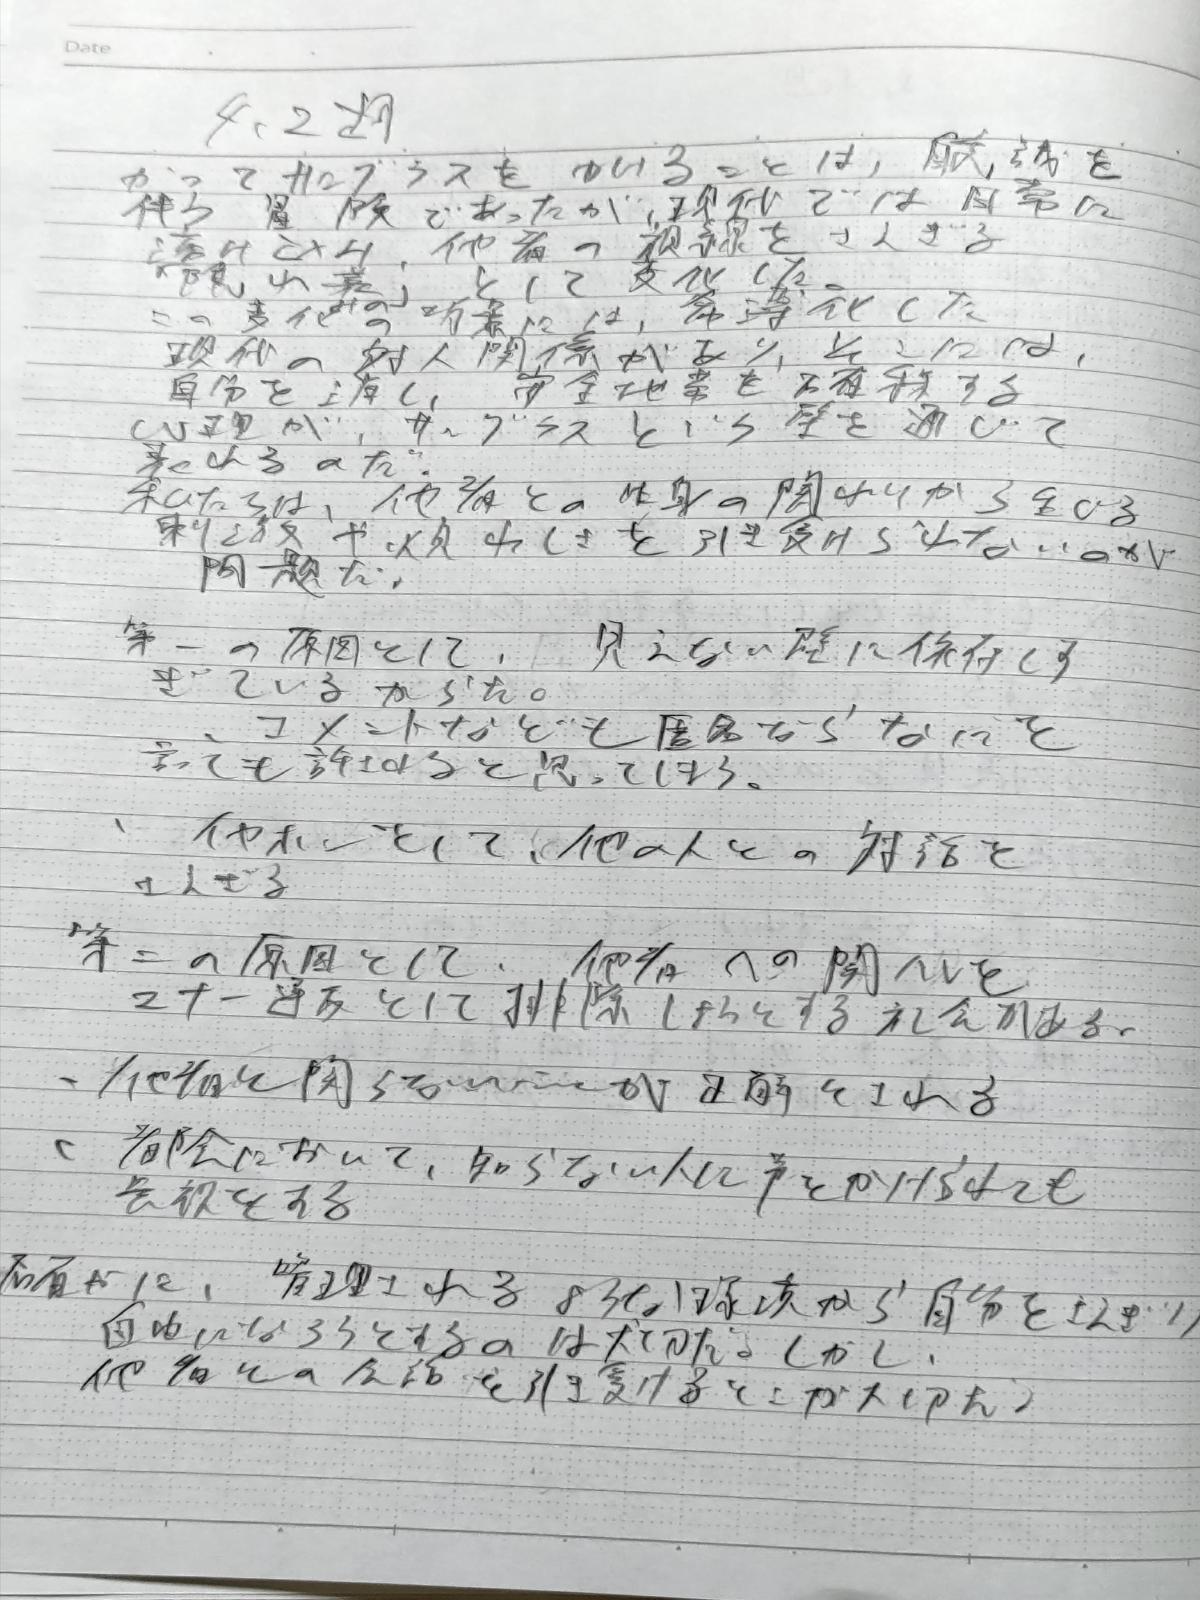 Date
4、2週
かつてサングラスをかけることは、
伴う冒険であったが、現代では日常に
溶け込み、他者の視線をさえぎる
「隠れ蓑」として変化した。
みの
この変化の背景には、希薄化した
現代の対人関係があり、そこには、
自分を消し、安全地帯を確保する
心理が、サングラスという壁を通じて
表れるのだ。
私たちは、他者との生身の関わりから生じる
刺激や煩わしさを引き受けられないのが
問題だ。
第一の原因として、見えない壁に依存しす
ぎているからだ。
、コメントなども匿名ならなにを
言っても許されると思ってしまう。
、イヤホンをして、他の人との対話を
さえぎる
第二の原因として、他者への関心を
マナー違反として排除しようとする社会がある。
、他者と関らないことが正解とされる
、都会において、知らない人に声をかけられても
無視をする
確かに、管理されるような環境から自分をさえぎり
自由になろうとするのは大切だ。しかし、
他者との会話を引き受けることが大切だ